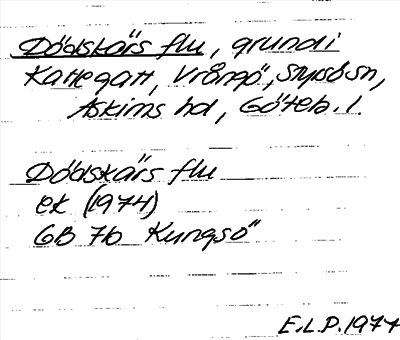 Dödskärs flu, grund i
Kattegatt, Vrångö, Styrsö sn,
Askims hd, Göteb. l.
Dödskärs flu
ek (1974)
6B 7b Kungsö
E.L.P. 1977